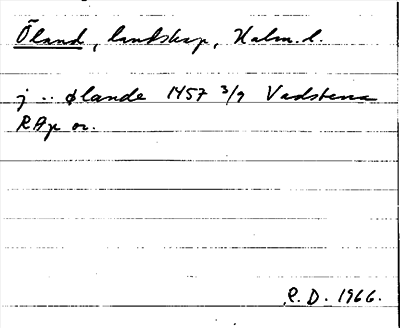 Öland, landskap, Kalm. l.
j .. ølande 1457 3/9 Vadstena
RAp or.
R. D. 1966.